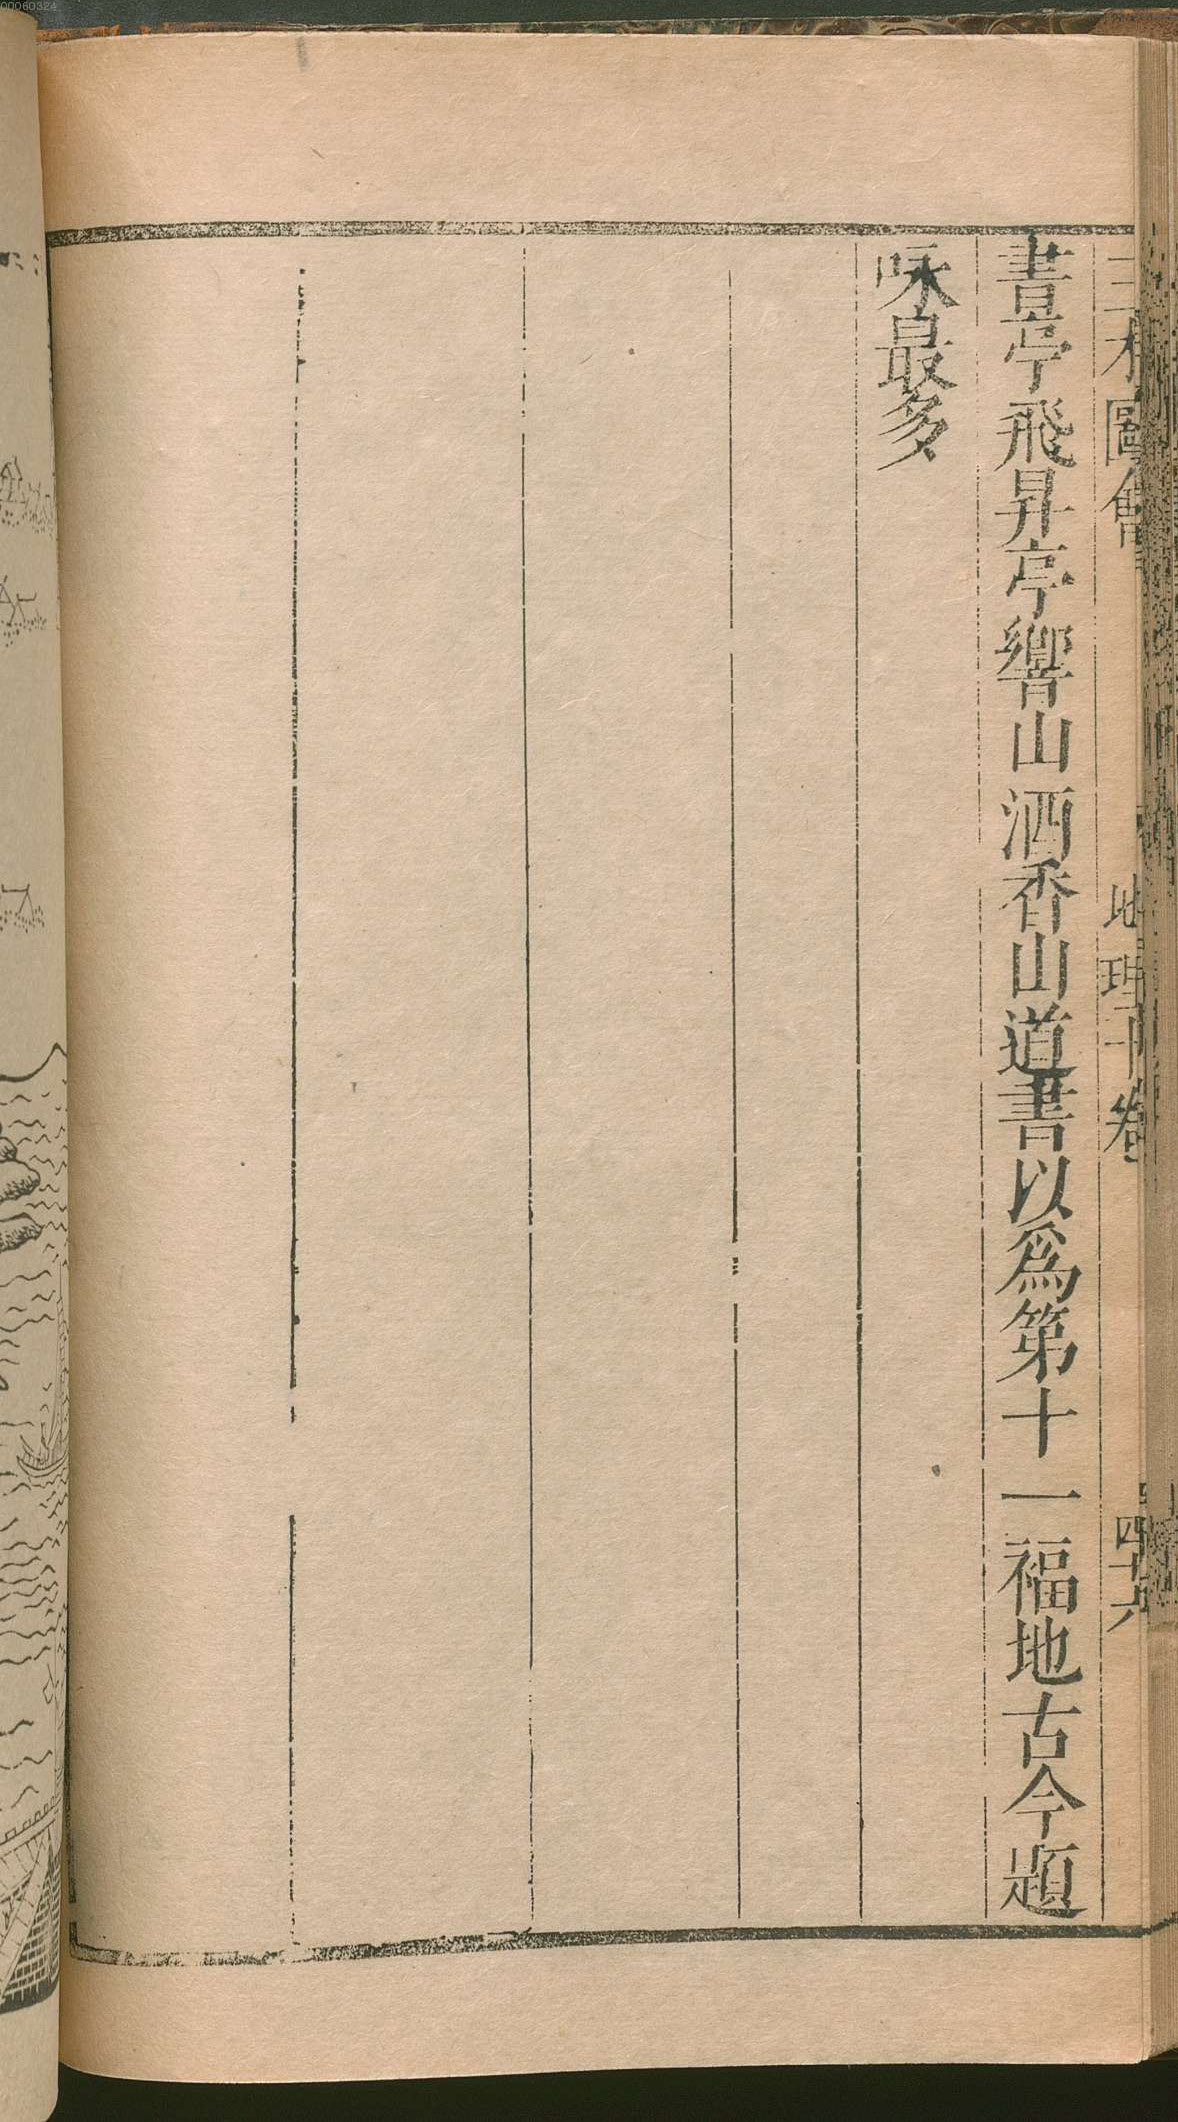 00060324
三才圖會 地理十卷 四十六
書亭飛昇亭響山酒香山道書以爲第十一福地古今題
咏最多